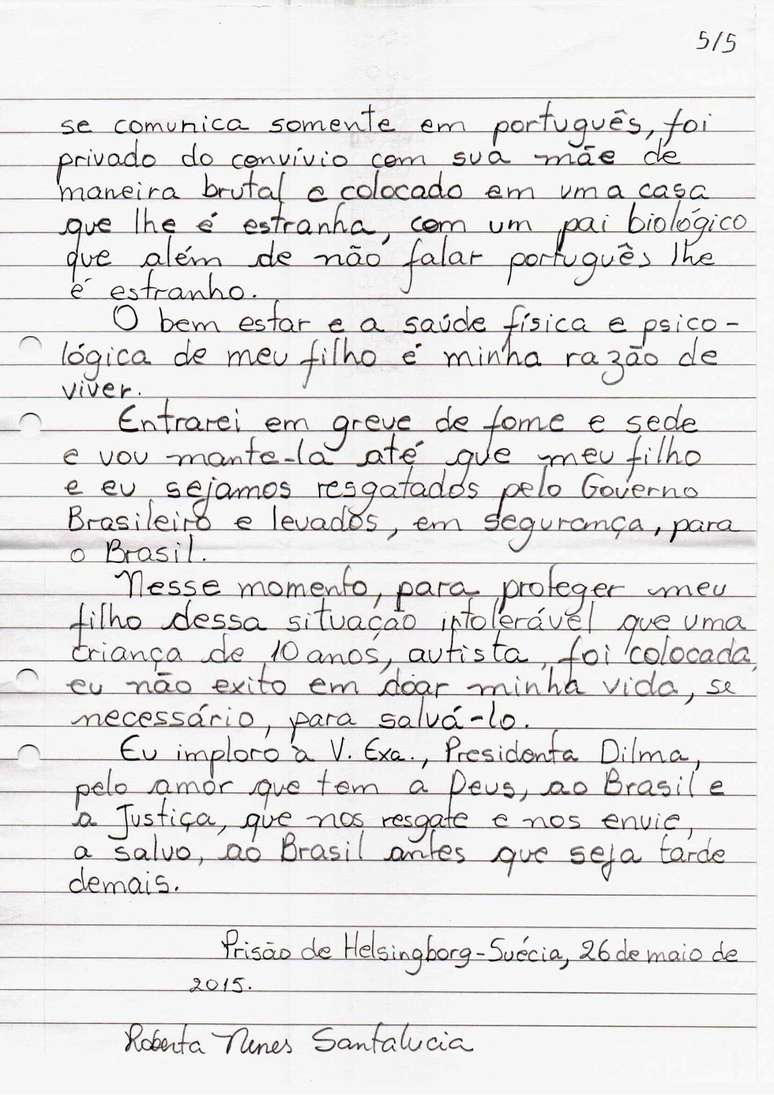 5/5
se comunica somente em português, foi
privado do convívio com sua mãe de
maneira brutal e colocado em uma casa
que lhe é estranha, com um pai biológico
que além de não falar português lhe
é estranho.
O bem estar e a saúde física e psico-
lógica de meu filho é minha razão de
viver.
Entrarei em greve de fome e sede
e vou mante-la até que meu filho
e eu sejamos resgatados pelo Governo
Brasileiro e levados, em segurança, para
o Brasil.
Nesse momento, para proteger meu
filho dessa situação intolerável que uma
criança de 10 anos, autista, foi colocada,
eu não exito em doar minha vida, se
necessário, para salvá-lo.
Eu imploro à V. Exa., Presidenta Dilma,
pelo amor que tem a Deus, ao Brasil e
a Justiça, que nos resgate e nos envie,
a salvo, ao Brasil antes que seja tarde
demais.
Prisão de Helsingborg-Suécia, 26 de maio de
2015.
Roberta Nenes Santalucia